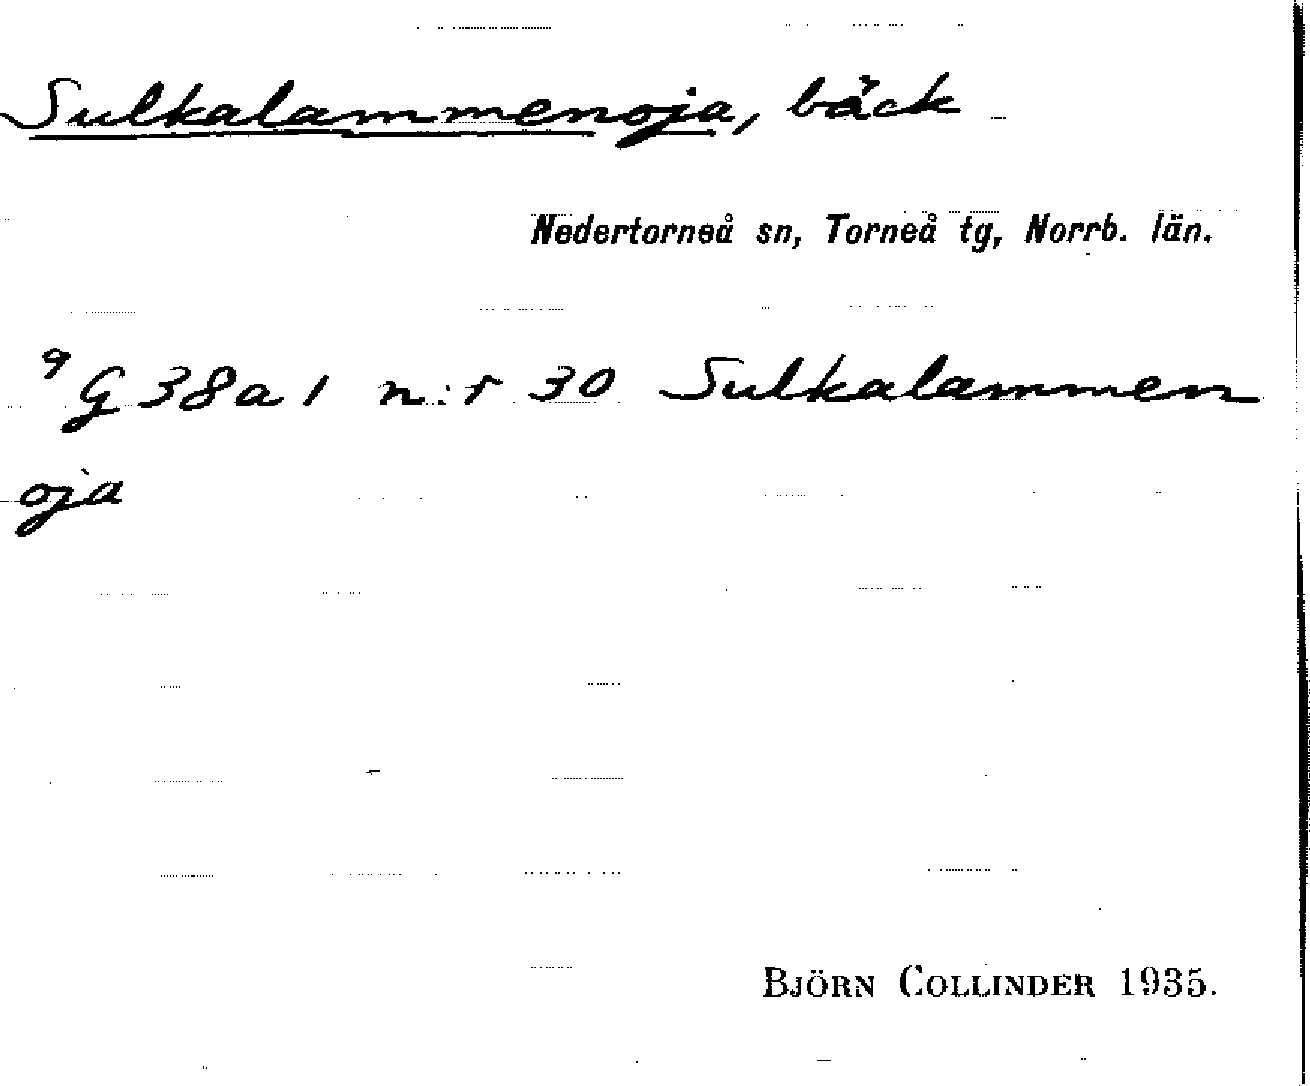 Sulkalammenoja, bäck
Nedertorneå sn, Torneå tg, Norrb. län.
⁹ G 38 a 1 n:r 30 Sulkalammen
oja
BJÖRN COLLINDER 1935.